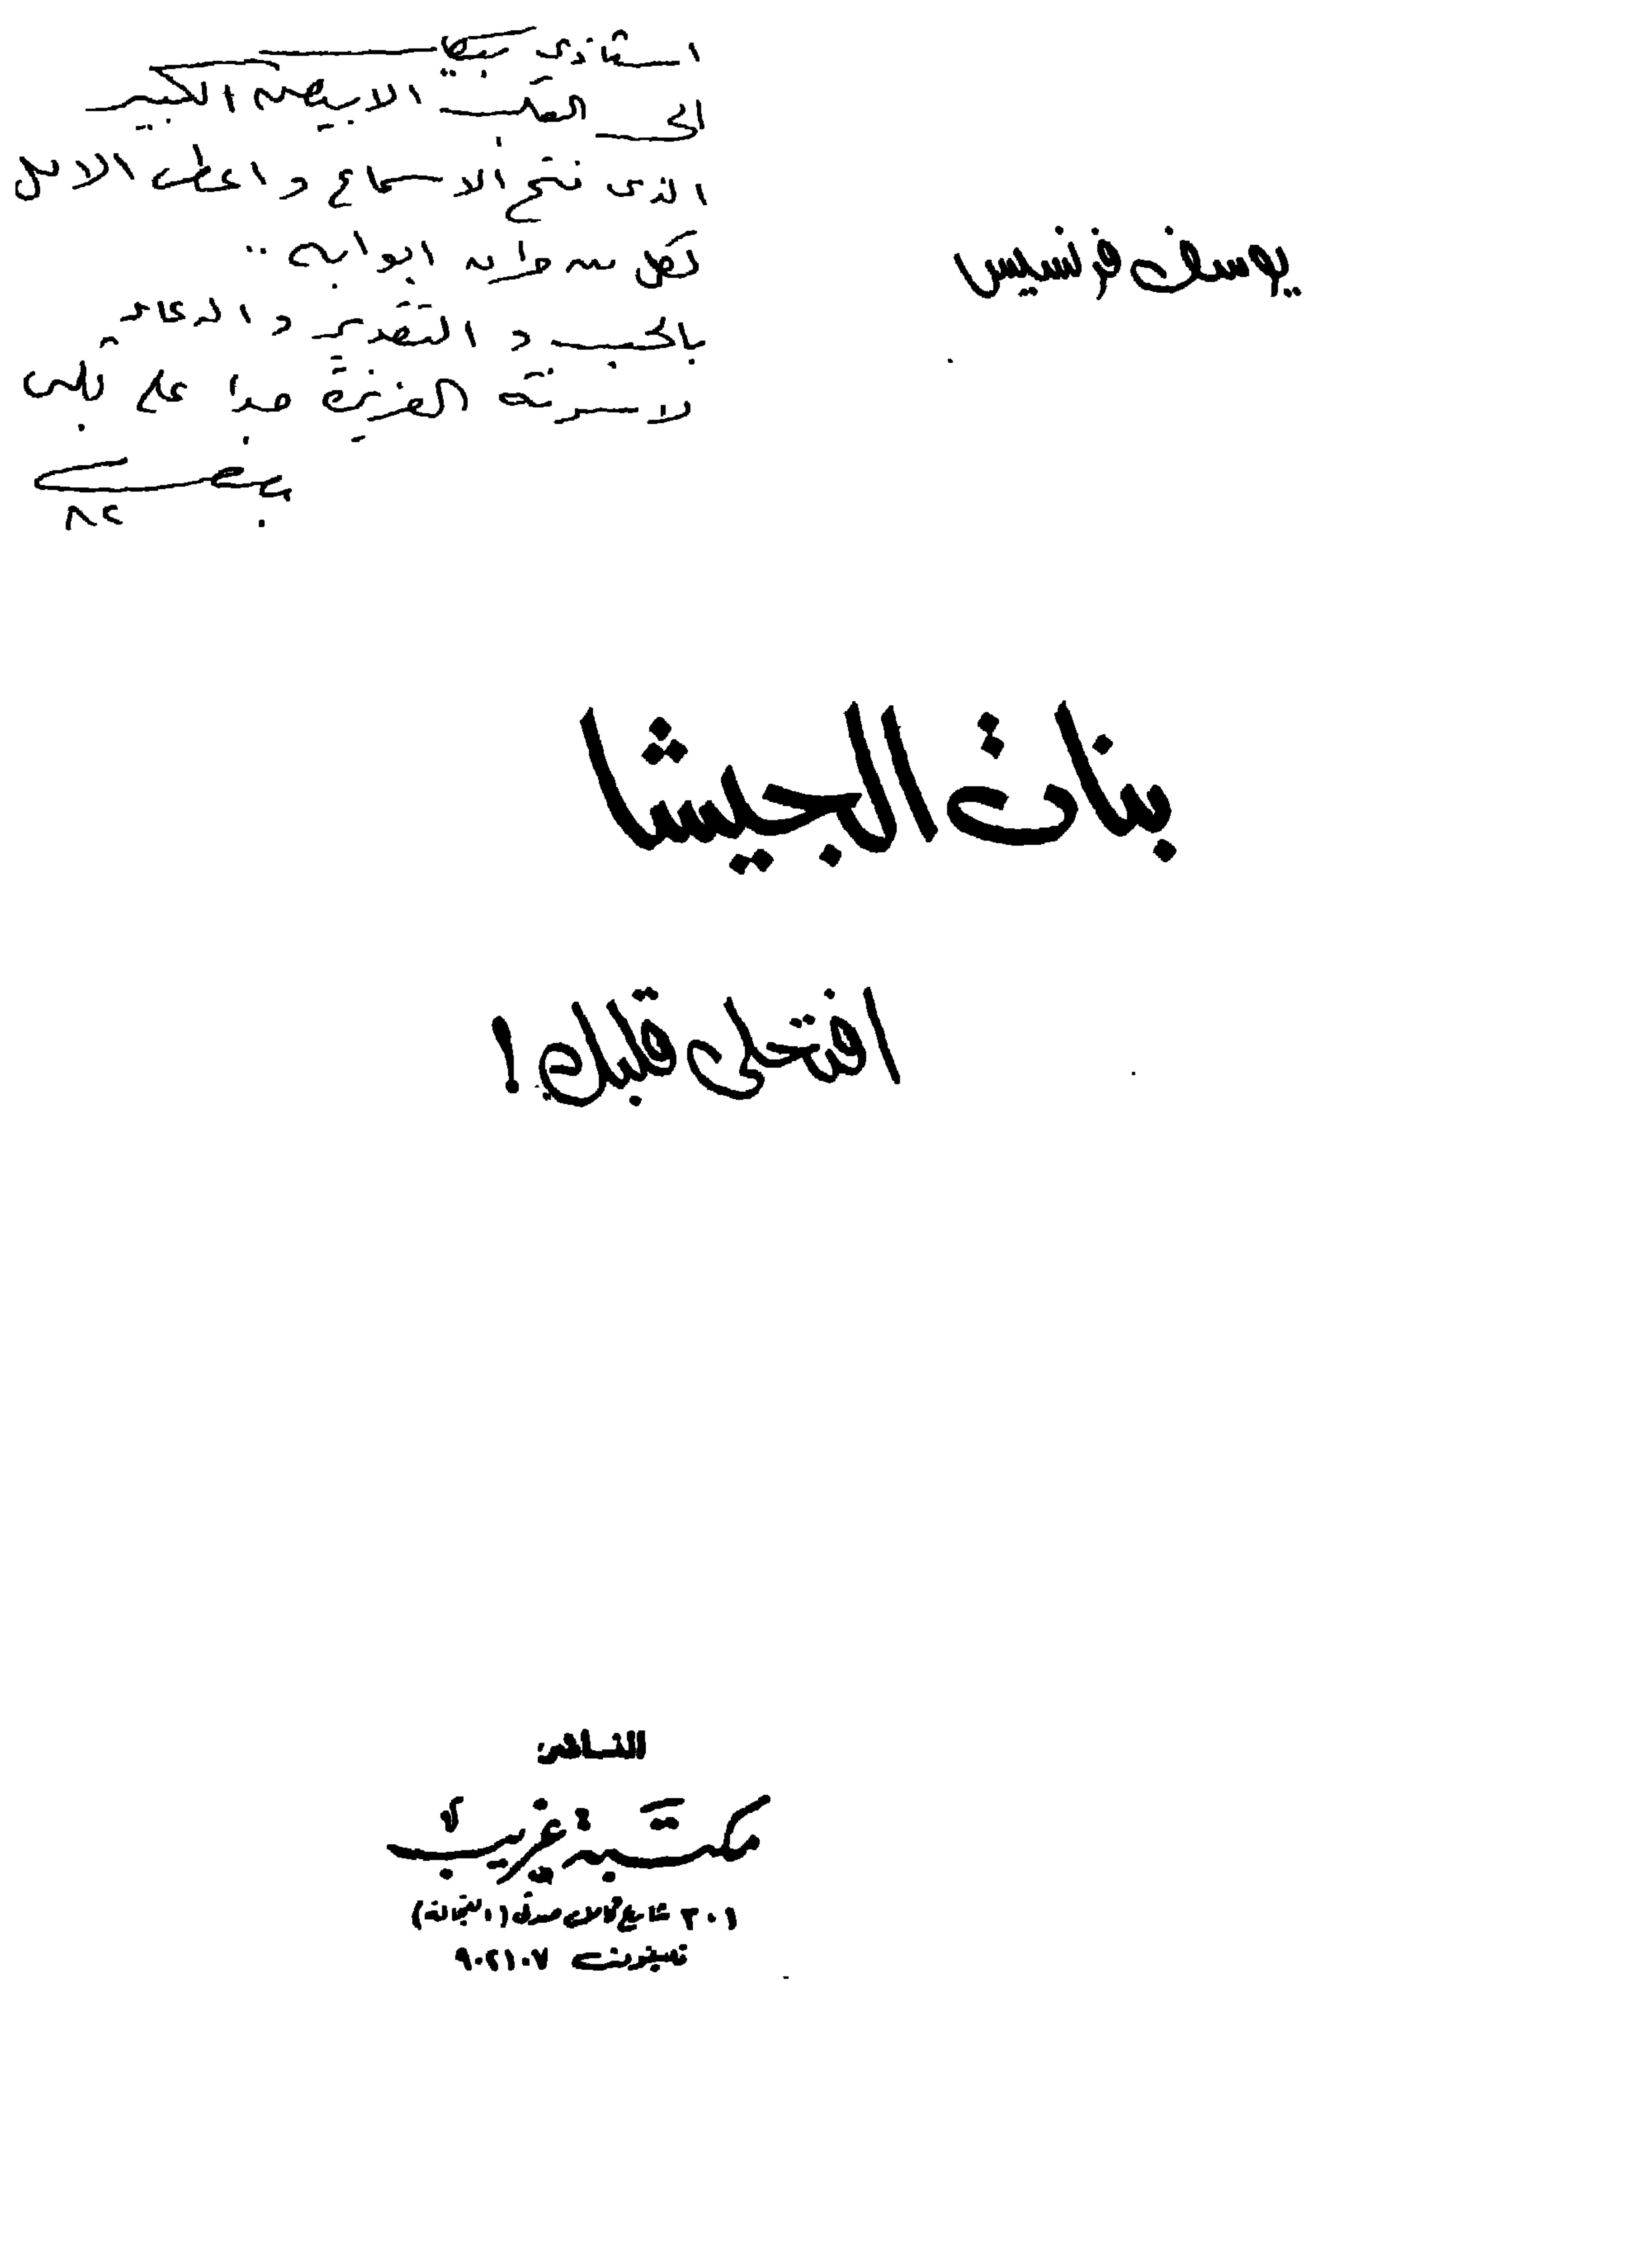 استاذى بيكار
الى القلب الابيض الكبير
الذى فتح الاسماع و اعطى الامل
لكل من طرق ابوابه ..
بالحب و التقدير و الدعاء
لاسرته العزيزة جدا على قلبى
يوسف
٨٢
يوسف فرنسيس
بنات الجيشا
افتحى قلبك !
الناشر
مكتبة غريب
٣٠١ شارع كامل صدقى (الفجالة)
تليفون ٩٠٢١٠٧